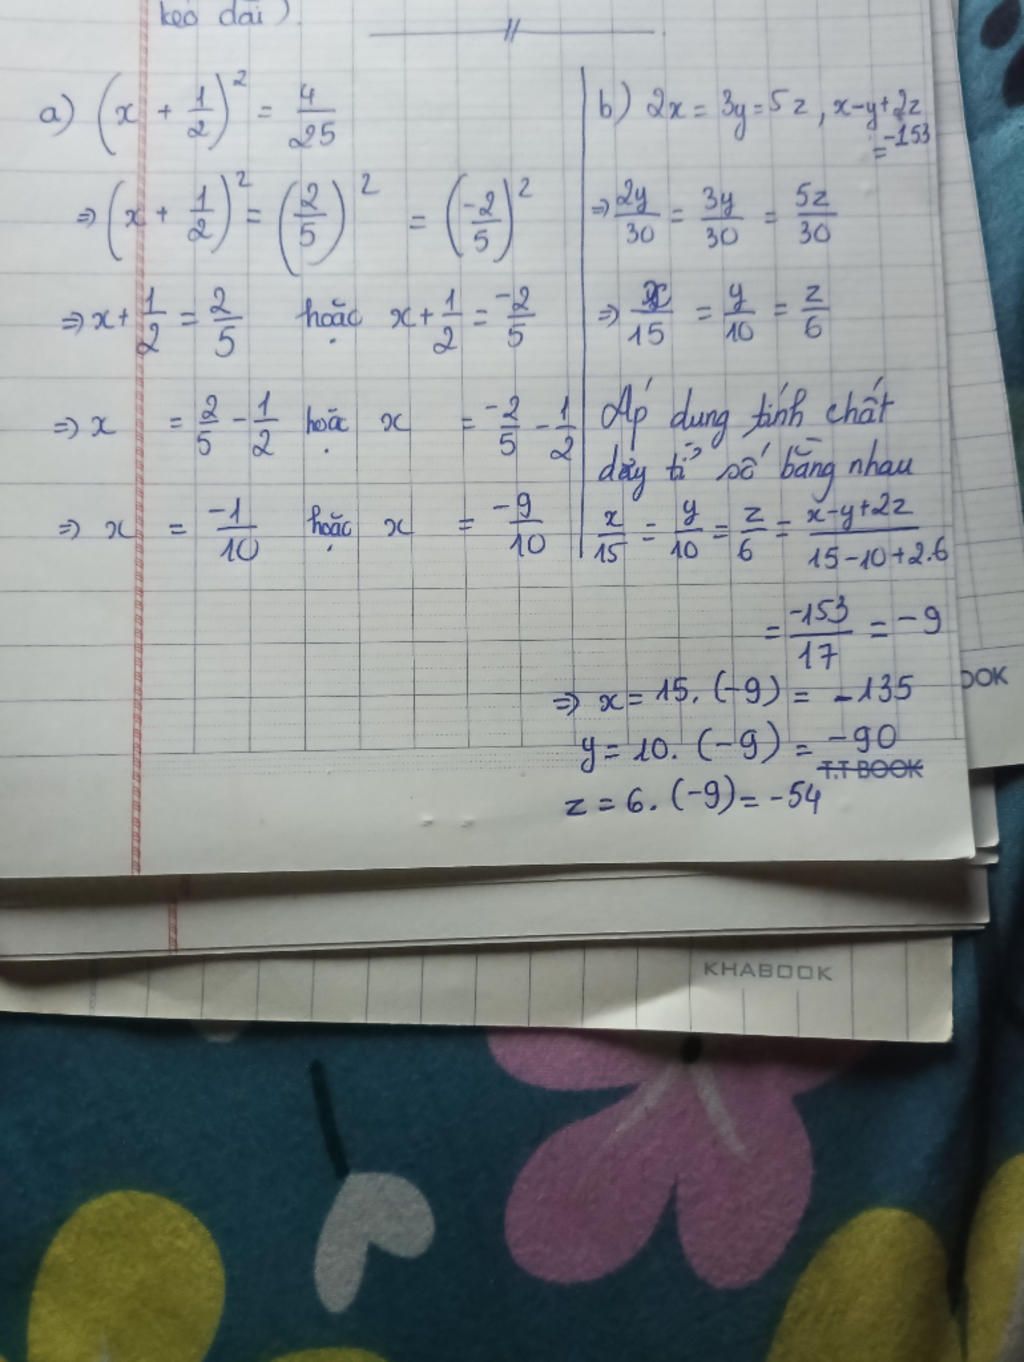 kéo dài).
a) (x + 1/2)² = 4/25
⇒ (x + 1/2)² = (2/5)² = (-2/5)²
⇒ x + 1/2 = 2/5 hoặc x + 1/2 = -2/5
⇒ x = 2/5 - 1/2 hoặc x = -2/5 - 1/2
⇒ x = -1/10 hoặc x = -9/10
b) 2x = 3y = 5z, x-y+2z
= -153
⇒ 2y/30 = 3y/30 = 5z/30
⇒ x/15 = y/10 = z/6
Áp dung tính chất
dãy tỉ số bằng nhau
x/15 = y/10 = z/6 = x-y+2z/15-10+2.6
= -153/17 = -9
⇒ x = 15. (-9) = -135
y = 10. (-9) = -90
z = 6. (-9) = -54
T.T BOOK
OOK
KHABOOK